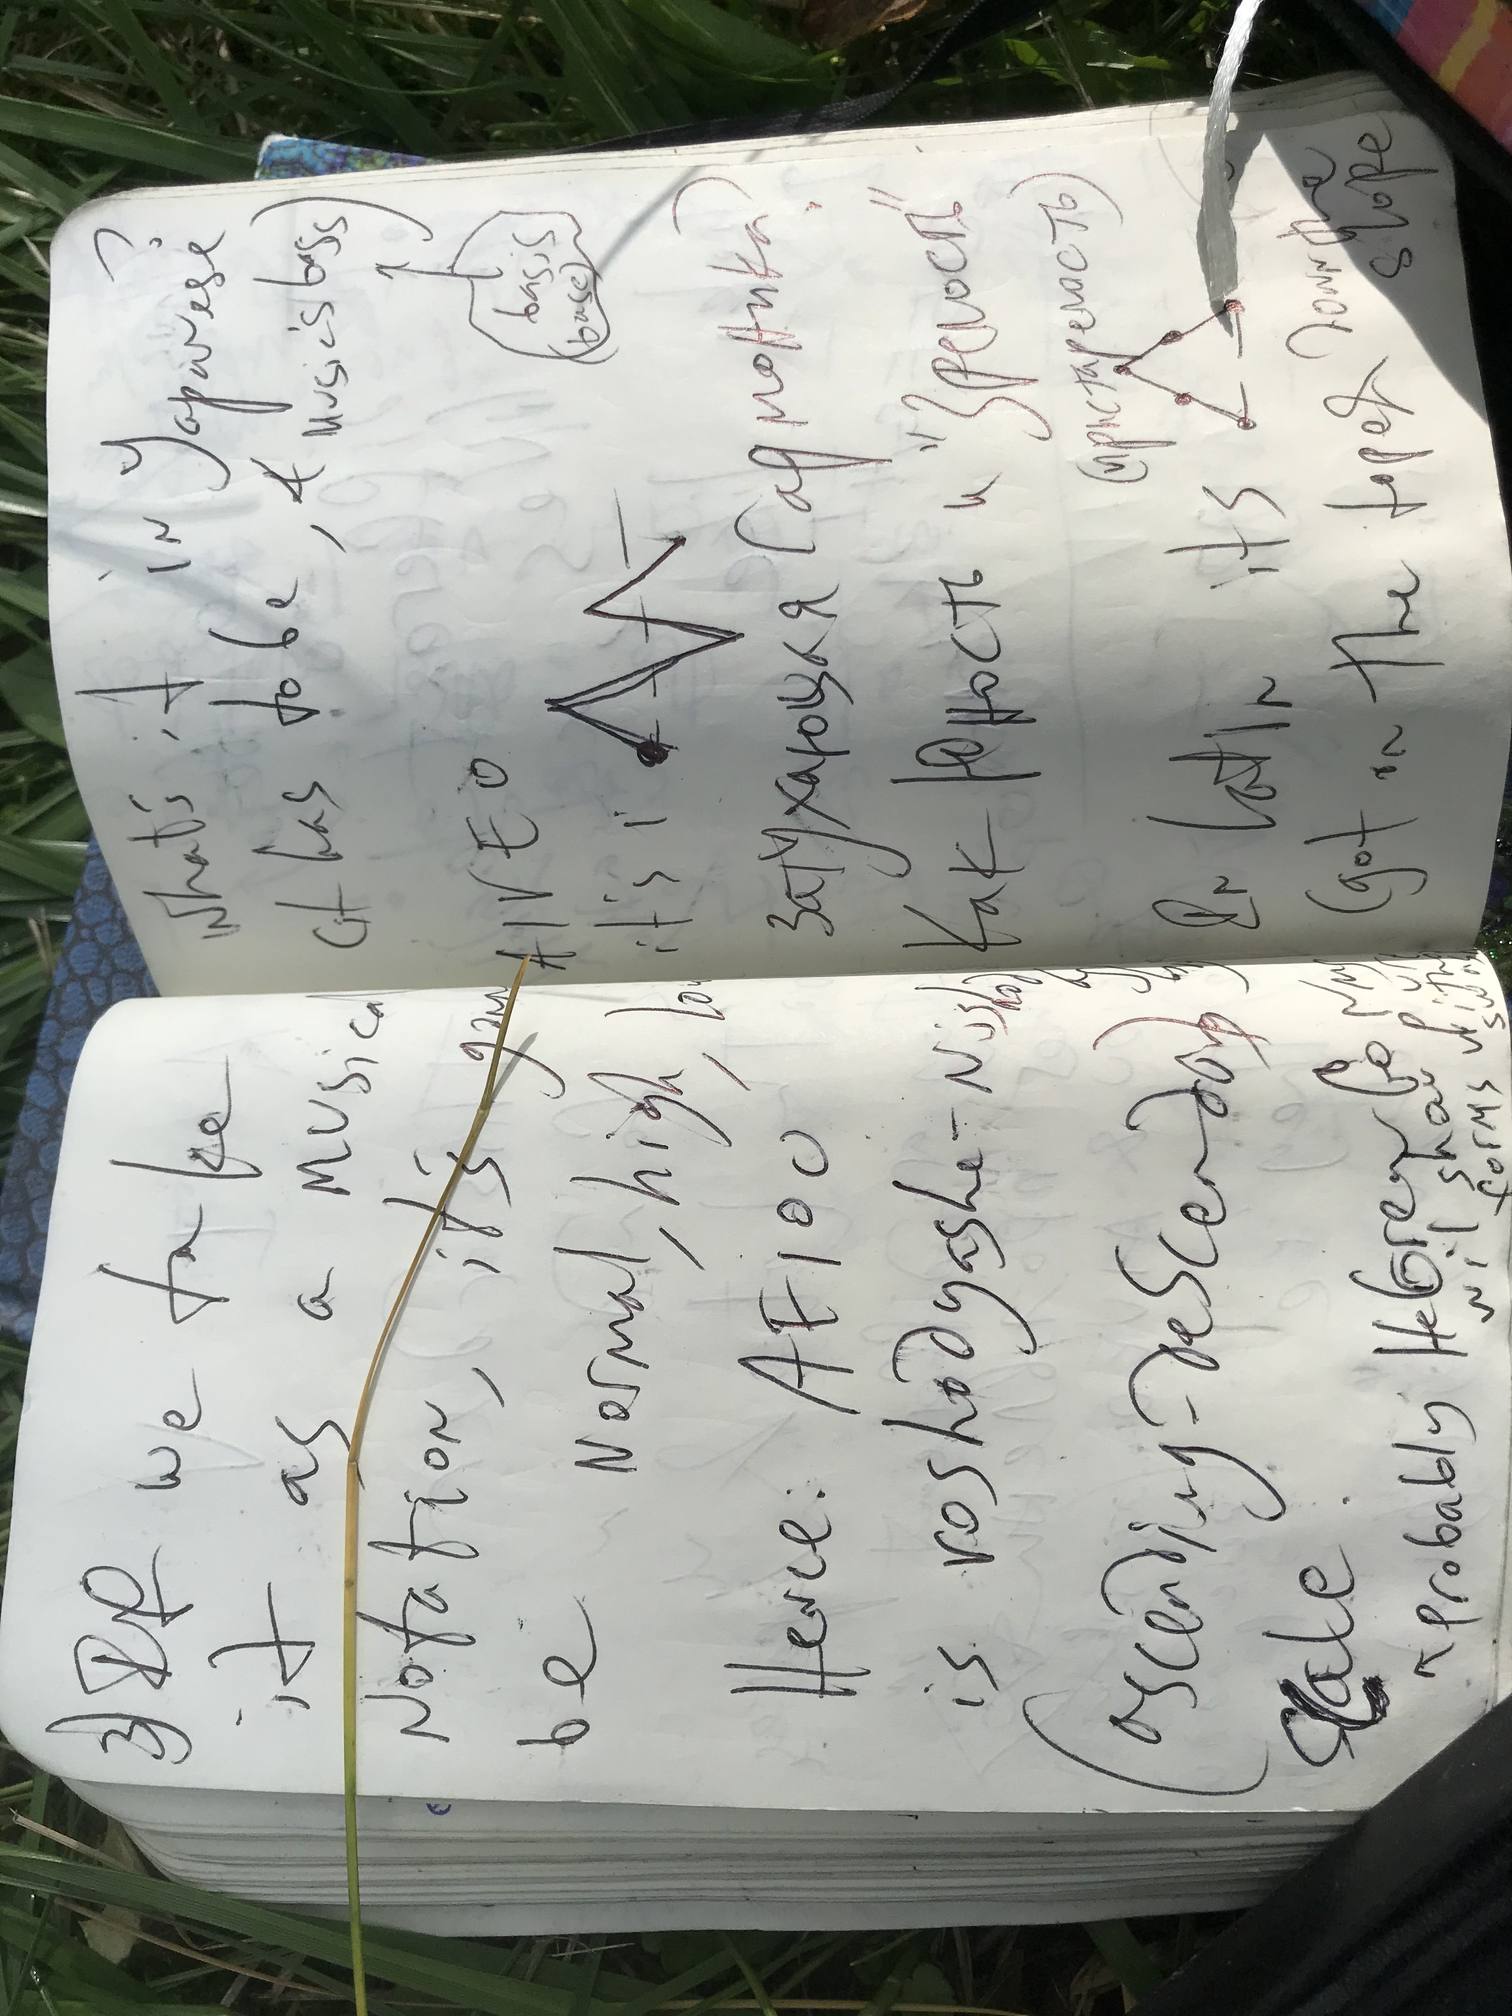 3) If we take
it as a musical
Notation, it's gonn
be Normal, high, low
Hence: AEIOU
is voshodyashe-Nish
(ascending-descending)
Scale.
↖ Probably Hebrew
will share
forms with
What's it in Japanese?
(it has to be, A musics bass)
basis
(base)
AIUEO
it's :
затухающая (гармоника)
Как Юность и "Зрелость"
(и престарелость)
In latin it's
(got in the
slope